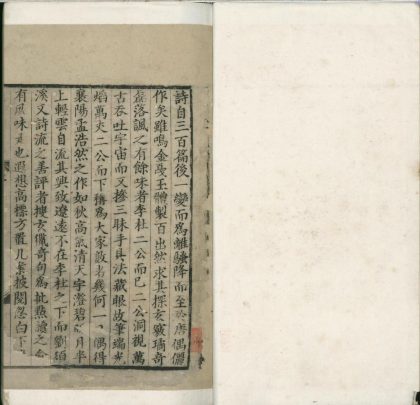 詩自三百篇後一變而爲離騷降而至於唐偶儷
作矣雖鳴金戛玉體製百出然求其探玄窺奇
盎落諷之有餘味者李杜二公而已二公洞視萬
古吞吐宇宙而又摻三昧手具法藏眼故筆端光
焰萬丈二公而下稱爲大家数者幾何一二偶得
襄陽孟浩然之作如秋高氣清天宇澄碧月半
上輕雲自流其興致遼遠不在李杜之下而劉須
溪又詩流之善評者搜玄獵奇句爲批㸃讀之
有風味也遐想高標方置几案披閱忽白下